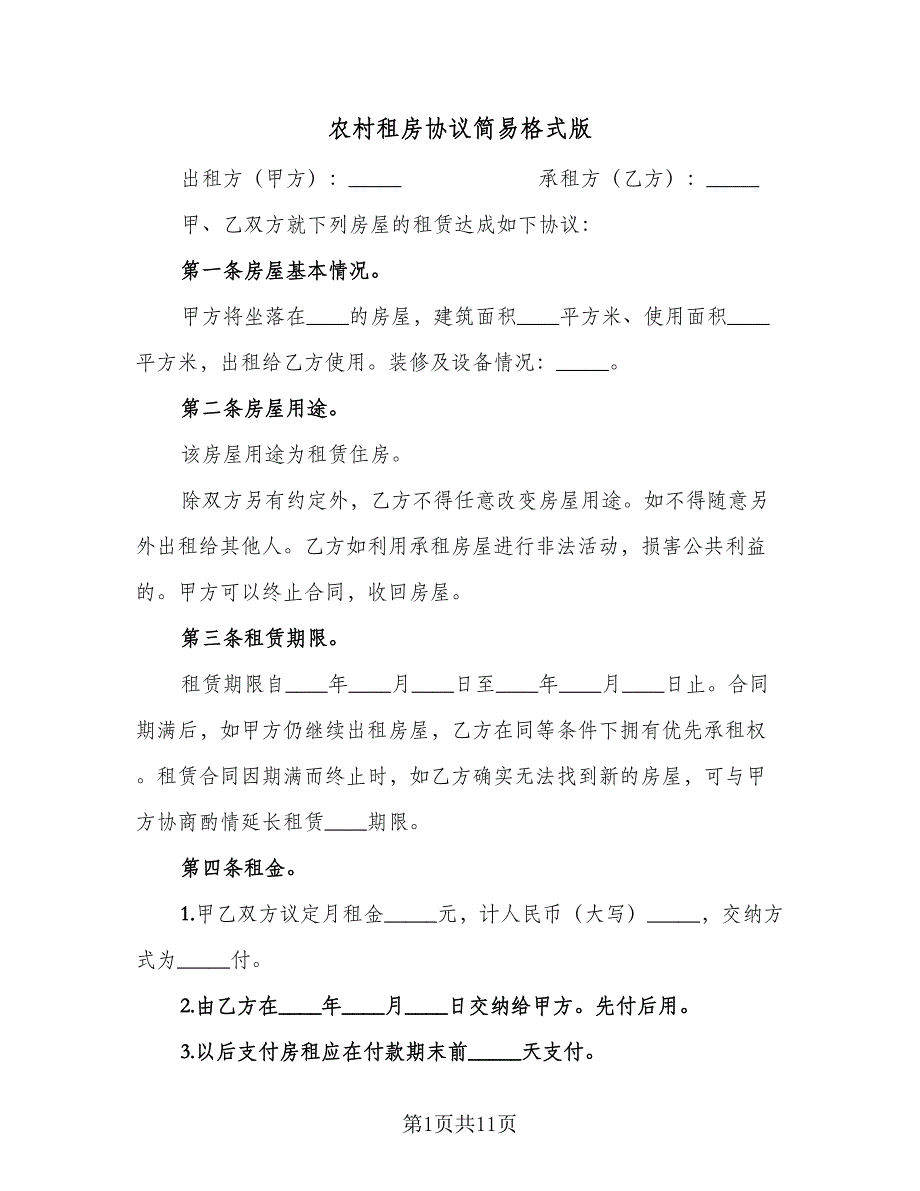 农村租房协议简易格式版
出租方（甲方）：_____ 承租方（乙方）：_____
甲、乙双方就下列房屋的租赁达成如下协议：
第一条房屋基本情况。
甲方将坐落在____的房屋，建筑面积____平方米、使用面积____
平方米，出租给乙方使用。装修及设备情况：_____。
第二条房屋用途。
该房屋用途为租赁住房。
除双方另有约定外，乙方不得任意改变房屋用途。如不得随意另
外出租给其他人。乙方如利用承租房屋进行非法活动，损害公共利益
的。甲方可以终止合同，收回房屋。
第三条租赁期限。
租赁期限自____年____月____日至____年____月____日止。合同
期满后，如甲方仍继续出租房屋，乙方在同等条件下拥有优先承租权
。租赁合同因期满而终止时，如乙方确实无法找到新的房屋，可与甲
方协商酌情延长租赁____期限。
第四条租金。
1.甲乙双方议定月租金_____元，计人民币（大写）_____，交纳方
式为_____付。
2.由乙方在____年____月____日交纳给甲方。先付后用。
3.以后支付房租应在付款期末前_____天支付。
第1页共11页